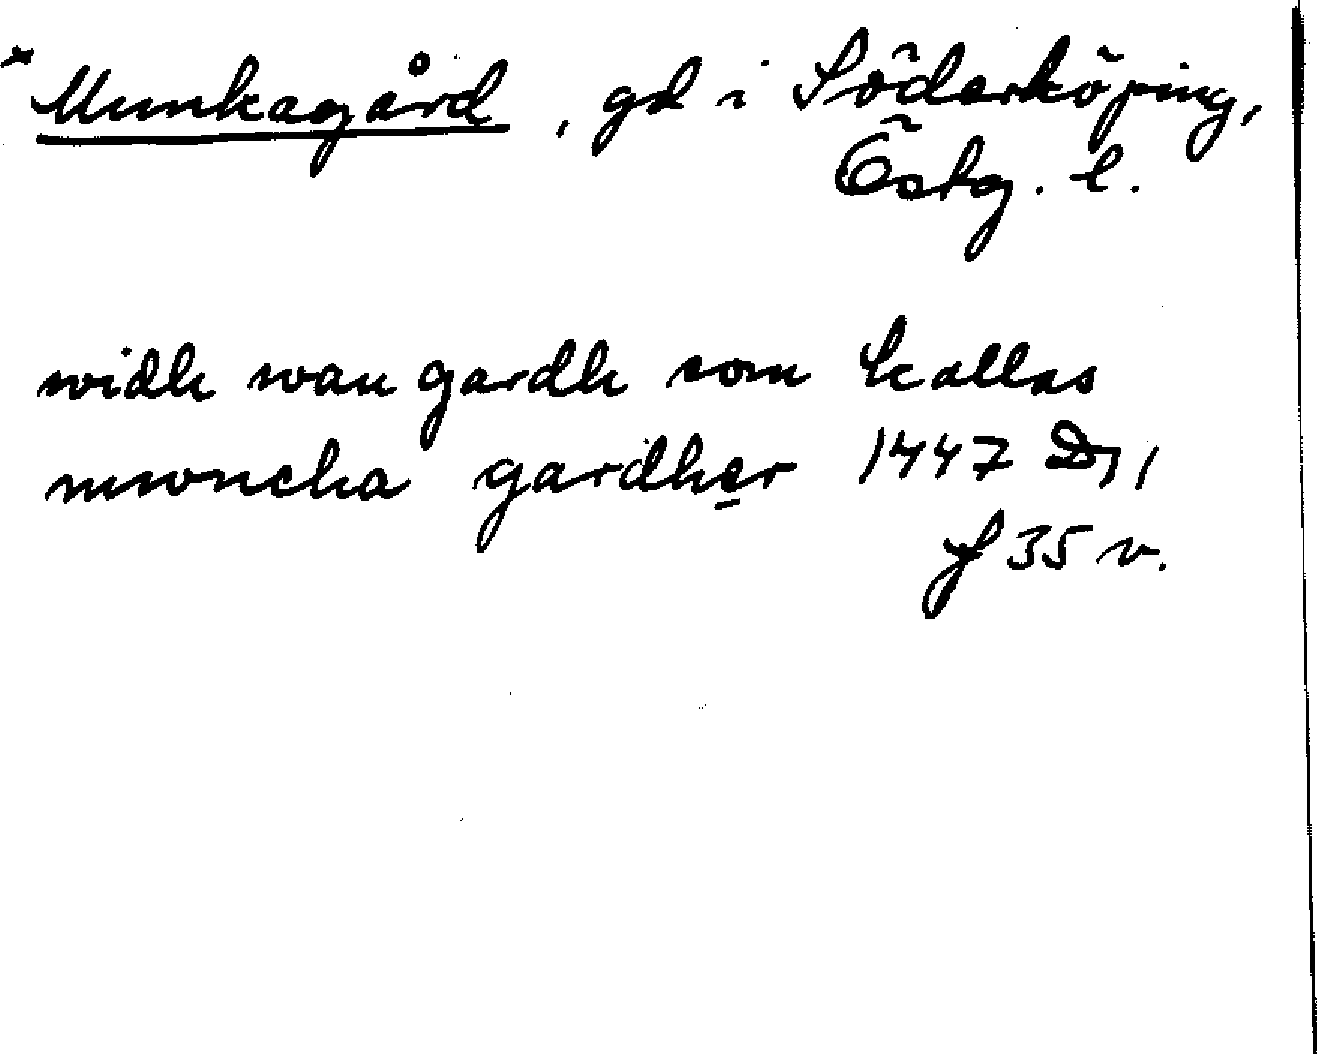 *Munkagård, gd i Söderköping,
Östg. l.
widh wan gardh som kallas
mwncha gardher 1447 D 1
f 35 v.